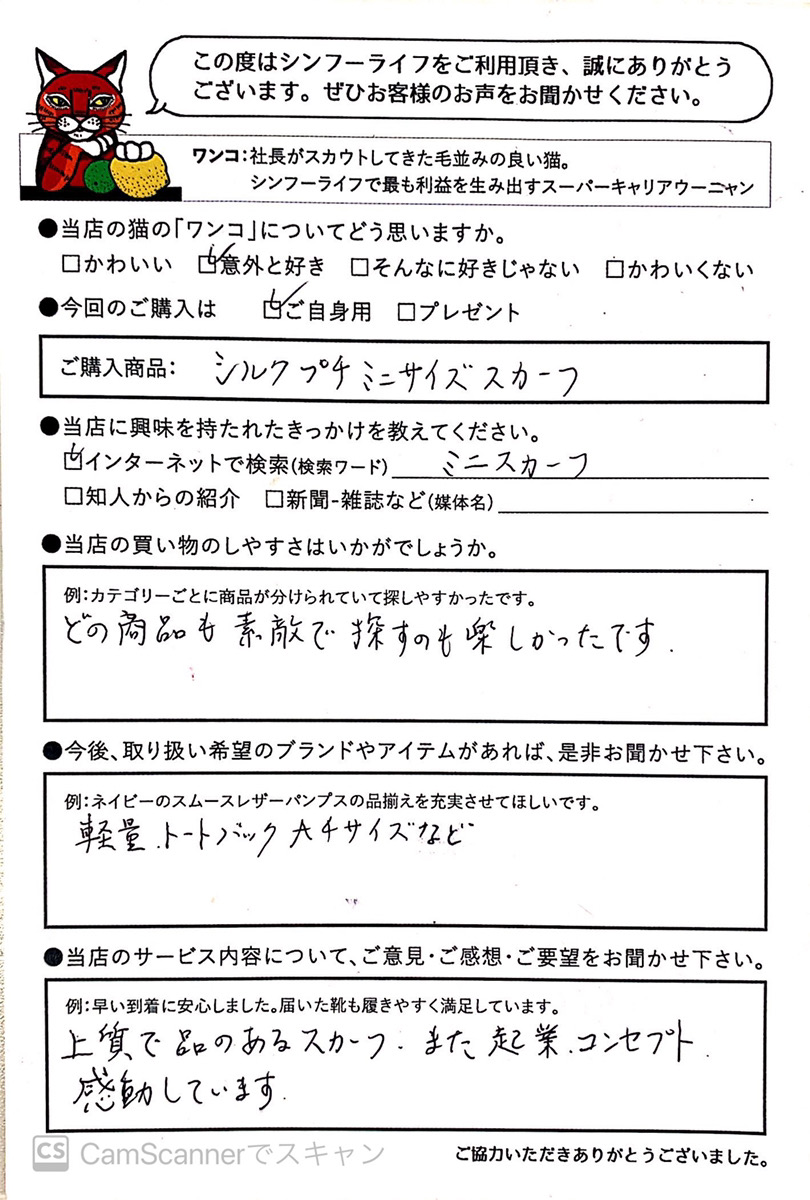 この度はシンフーライフをご利用頂き、誠にありがとう
ございます。ぜひお客様のお声をお聞かせください。
ワンコ：社長がスカウトしてきた毛並みの良い猫。
シンフーライフで最も利益を生み出すスーパーキャリアウーニャン
●当店の猫の「ワンコ」についてどう思いますか。
□かわいい ☑意外と好き □そんなに好きじゃない □かわいくない
●今回のご購入は ☑ご自身用 □プレゼント
ご購入商品： シルクプチミニサイズスカーフ
●当店に興味を持たれたきっかけを教えてください。
☑インターネットで検索(検索ワード) ミニスカーフ
□知人からの紹介 □新聞-雑誌など(媒体名)
●当店の買い物のしやすさはいかがでしょうか。
例：カテゴリーごとに商品が分けられていて探しやすかったです。
どの商品も素敵で探すのも楽しかったです.
●今後、取り扱い希望のブランドやアイテムがあれば、是非お聞かせ下さい。
例：ネイビーのスムースレザーパンプスの品揃えを充実させてほしいです。
軽量.トートバック大チサイズなど
●当店のサービス内容について、ご意見・ご感想・ご要望をお聞かせ下さい。
例：早い到着に安心しました。届いた靴も履きやすく満足しています。
上質で品のあるスカーフ.また起業.コンセプト.
感動しています.
CS CamScannerでスキャン
ご協力いただきありがとうございました。